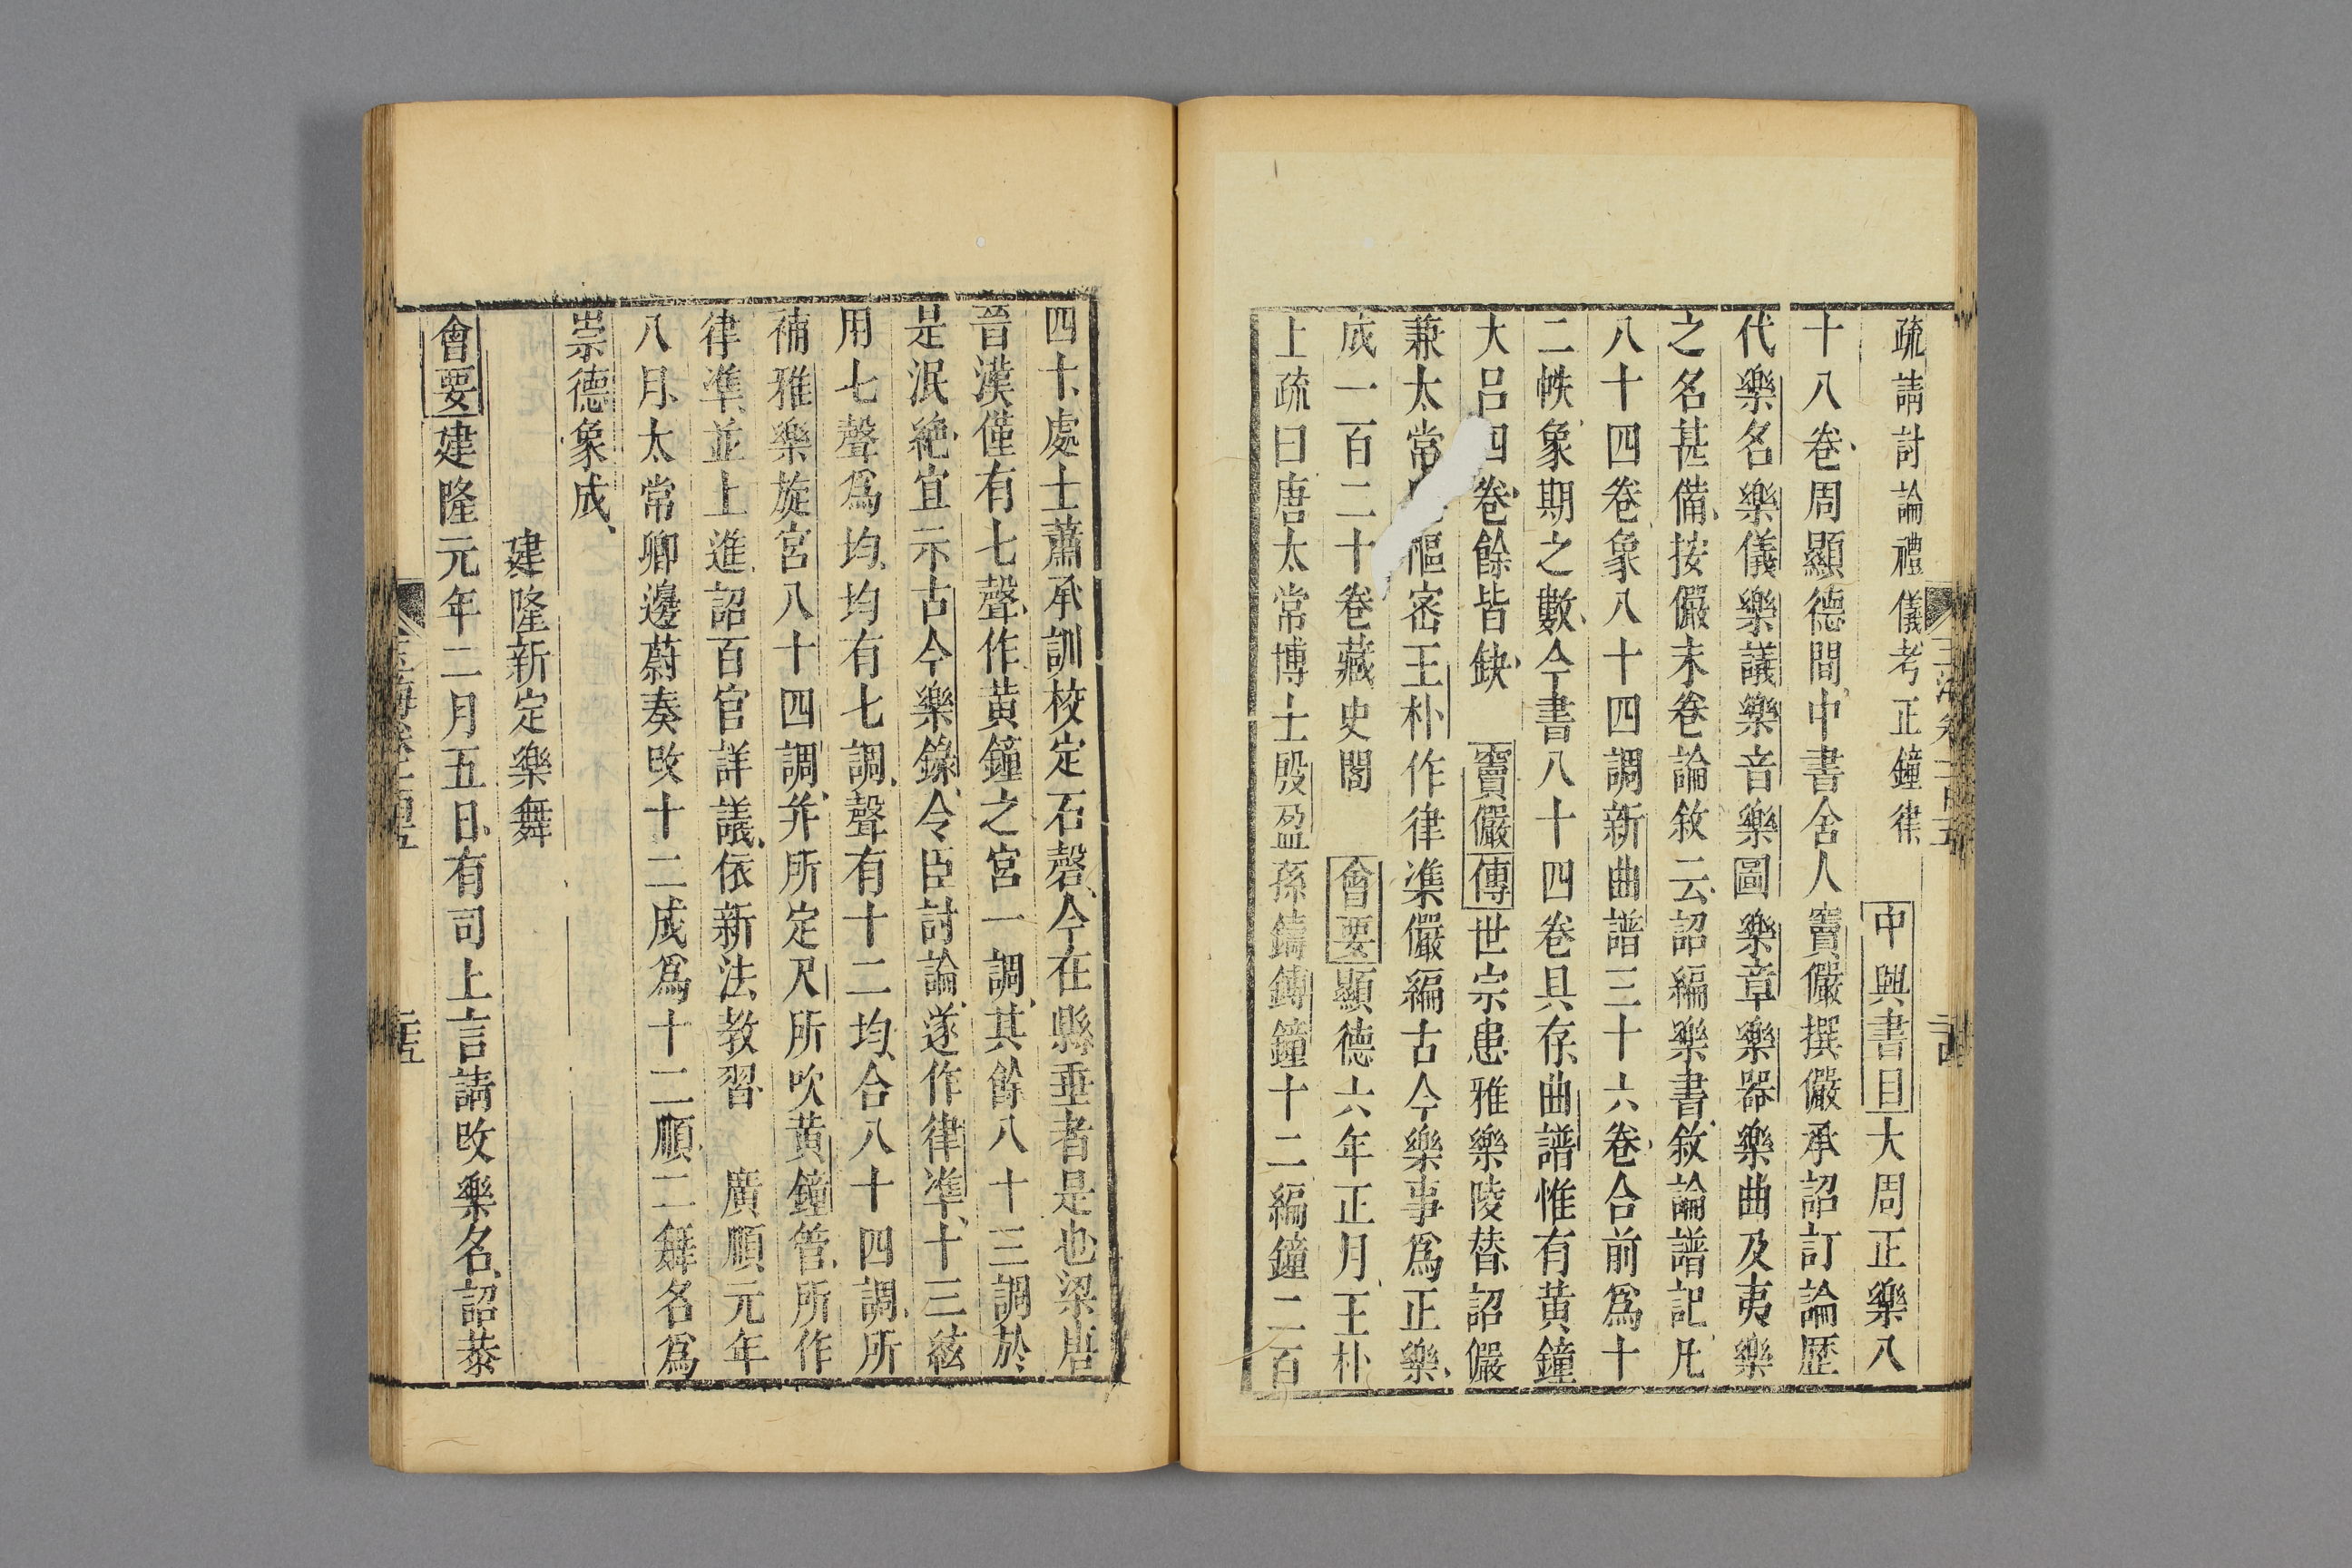 疏請討論禮儀考正鐘律 中興書目大周正樂八
十八卷周顯德間中書舍人竇儼撰儼承詔訂論歷
代樂名樂儀樂議樂音樂圖樂章樂器樂曲及夷樂
之名甚備按儼末卷論敘云詔編樂書敘論譜記凡
八十四卷象八十四調新曲譜三十六卷合前爲十
二帙象期之數今書八十四卷具存曲譜惟有黃鐘
大呂四卷餘皆缺 竇儼傳世宗患雅樂陵替詔儼
兼太常樞密王朴作律準儼編古今樂事爲正樂
成一百二十卷藏史閣 會要顯德六年正月王朴
上疏曰唐太常博士殷盈孫鑄鎛鐘十二編鐘二百
四十處士蕭承訓校定石磬今在縣垂者是也梁唐
晉漢僅有七聲作黃鐘之宮一調其餘八十三調於
是泯絶宜示古今樂錄令臣討論遂作律準十三絃
用七聲爲均均有七調聲有十二均合八十四調所
補雅樂旋宮八十四調并所定尺所吹黃鐘管所作
律準並上進詔百官詳議依新法教習 廣順元年
八月太常卿邊蔚奏改十二成爲十二順二舞名爲
崇德象成
建隆新定樂舞
會要建隆元年二月五日有司上言請改樂名詔恭